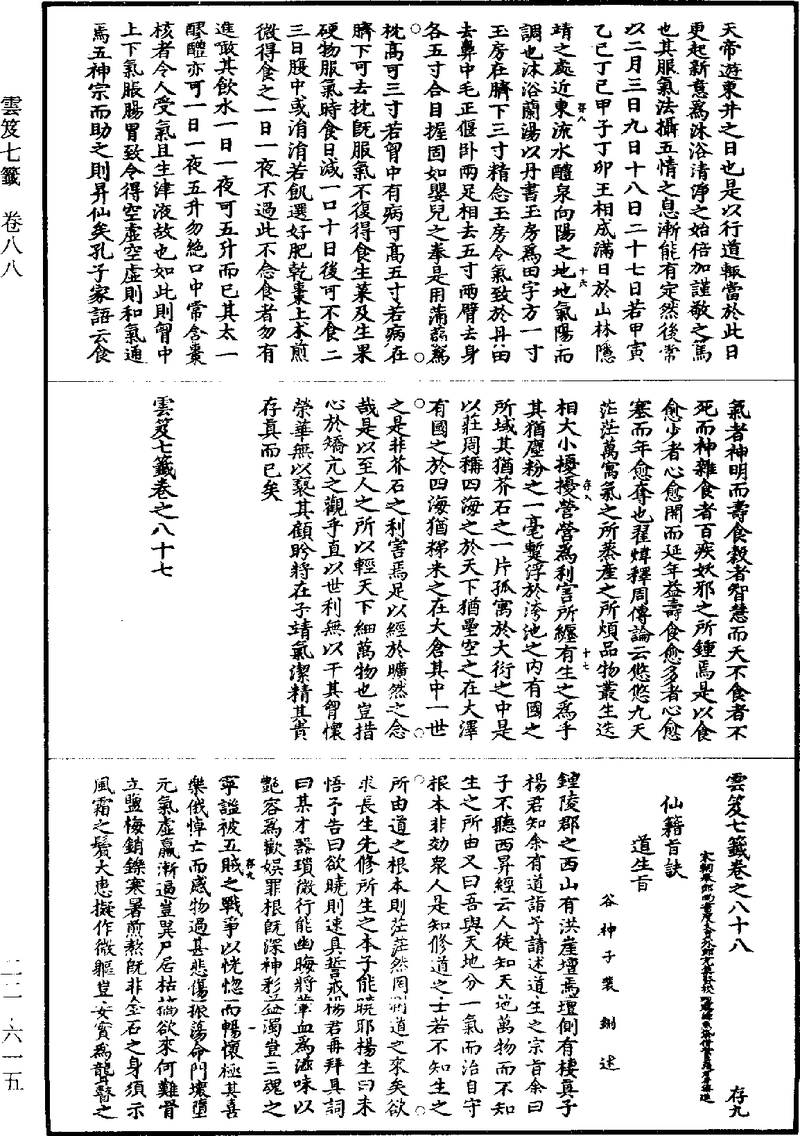 天帝遊東井之日也是以行道輙當於此日
更起新意爲沐浴清淨之始倍加謹敬之篤
也其服氣法攝五情之息漸能有定然後常
以二月三日九日十八日二十七日若甲寅
乙巳丁巳甲子丁卯王相成滿日於山林隱
靖之處近東流水醴泉向陽之地地氣陽而
存八
十六
調也沐浴蘭湯以丹書玉房爲田字方一寸
玉房在臍下三寸精念玉房令氣致於丹田
去鼻中毛正偃卧兩足相去五寸兩臂去身
各五寸合目握固如嬰兒之拳是用蒲蒻爲
枕高可三寸若胷中有病可高五寸若病在
臍下可去枕旣服氣不復得食生菜及生果
硬物服氣時食日減一口十日後可不食二
三日腹中或淯淯若飢選好肥乾棗上术煎
微得食之一日一夜不過此不念食者勿有
進敢其飲水一日一夜可五升而已其太一
醪醴亦可一日一夜五升勿絶口中常含棗
核者令人受氣且生津液故也如此則胷中
上下氣脹腸胃致令得空虛空虛則和氣通
焉五神宗而助之則昇仙矣孔子家語云食
氣者神明而壽食穀者智慧而夭不食者不
死而神雜食者百疾妖邪之所鍾焉是以食
愈少者心愈開而延年益壽食愈多者心愈
塞而年愈奪也翟煒釋周傳論云悠悠九天
茫茫萬寓氣之所蒸産之所煩品物叢生迭
相大小擾擾營營爲利害所纒有生之爲乎
存八
十七
其猶塵粉之一毫蹔浮於洿池之内有國之
所域其猶芥石之一片孤寓於大衍之中是
以莊周稱四海之於天下猶壘空之在大澤
有國之於四海猶稊米之在大倉其中一世
之是非芥石之利害焉足以經於曠然之念
哉是以至人之所以輕天下細萬物也豈措
心於矯亢之觀乎直以世利無以干其胷懷
榮華無以褻其顧眄將在子靖氣潔精其貴
存眞而已矣
雲笈七籤卷之八十七
雲笈七籤卷之八十八
存九
仙籍旨訣
道生旨
谷神子裴鉶述
鍾陵郡之西山有洪崖壇焉壇側有棲眞子
楊君知余有道詣予請述道生之宗旨余曰
子不聽西昇經云人徒知天地萬物而不知
生之所由又曰吾與天地分一氣而治自守
根本非効衆人是知修道之士若不知生之
所由道之根本則茫茫然罔測道之來矣欲
求長生先修所生之本子能曉耶楊生曰未
悟予告曰欲曉則速具誓戒楊君再拜具詞
曰某才器瑣微行能幽晦將葷血爲滋味以
艷容爲歡娱罪根旣深神彩益濁豈三魂之
存九
一
寧謐被五賊之戰爭以恍惚而暢懷極其喜
樂俄悼亡而感物過甚悲傷振蕩命門壞墮
元氣虛羸漸逼豈異尸居枯槁欲來何難骨
立鹽梅銷鑠寒暑煎熬旣非金石之身須示
風霜之鬢大患擬作微軀豈安實爲聾瞽之
雲笈七籤 卷八八
二二·六一五